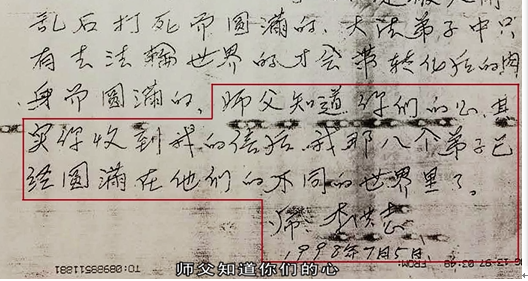 乱后打死而圆满的。大法弟子中只
有去法輪世界的才会带转化后的肉
身而圆满的。师父知道你们的心。其
实你收到我的信后,我那八个弟子已
经圆满在他们的不同的世界里了。
师: 李洪志
1998年7月5日
师父知道你们的心